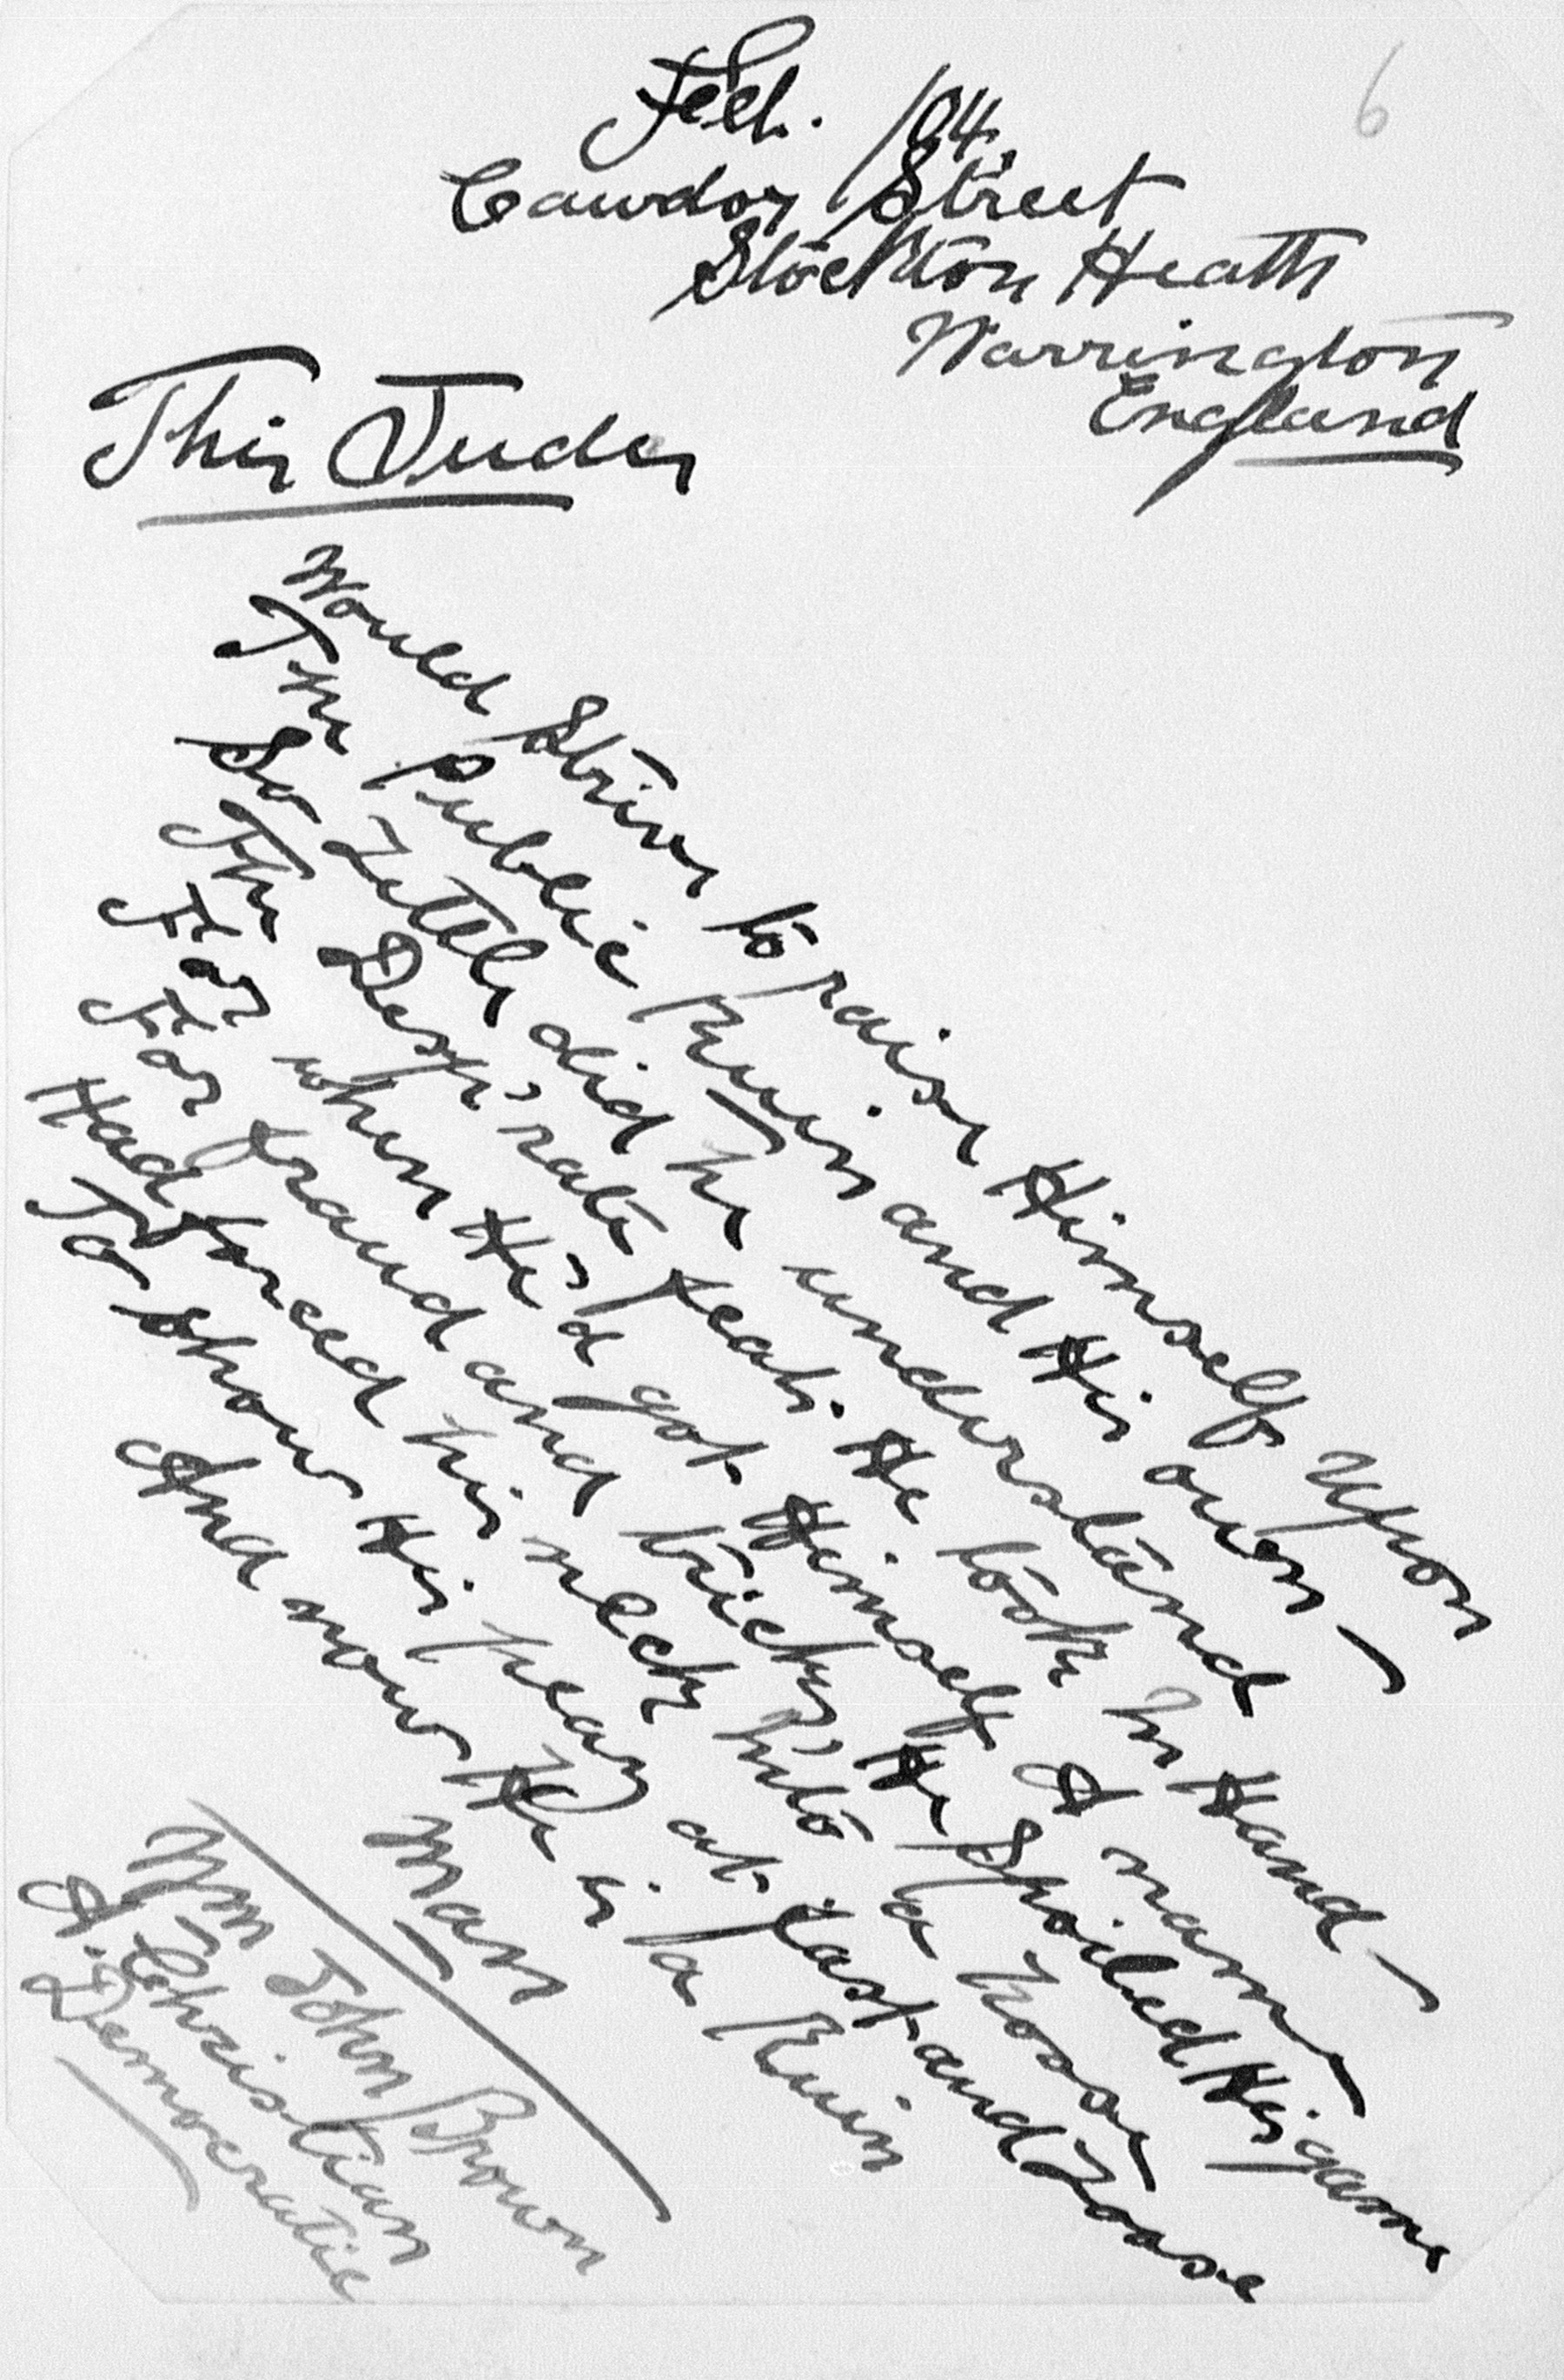 6
Feb. /04.
Cawdor Street
Stockton Heath
Warrington
England
This Judas
Would Strive to raise Himself Upon
The Public Ruin and His own—
So Little did he understand
The Desp'rate feat. He took in Hand—
For when He'd got Himself A name
For fraud and tricks, He Spoiled His game
Had forced his neck into a noose
To show His play at fast and Loose
And now He is a Ruin
Man
Wm John Brown
A. Christian
Democratic